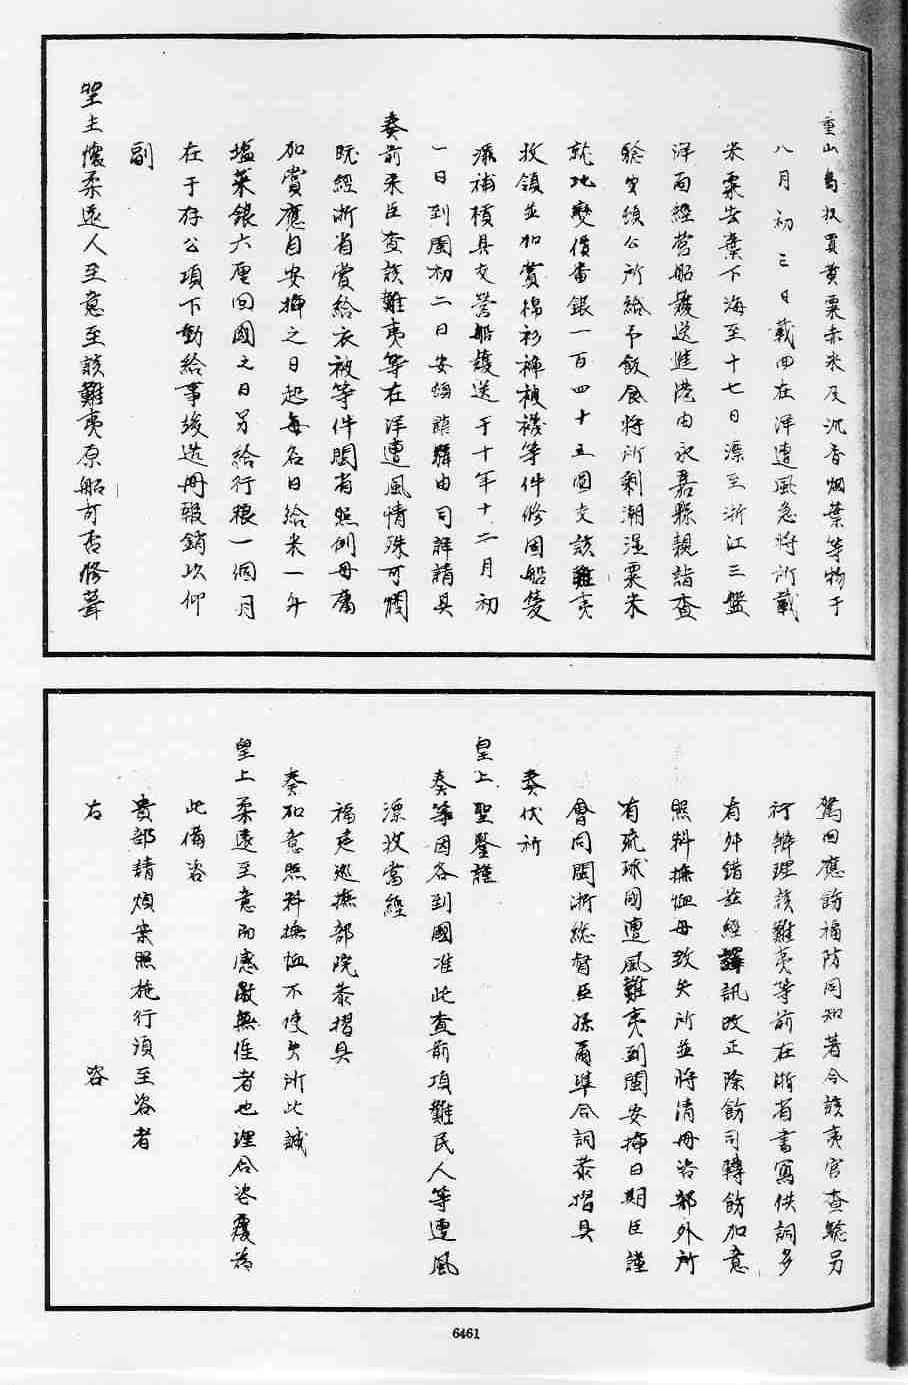 重山島收買黄粟赤米及沉香烟葉等物于
八月初三日載回在洋遭風急將所載
米粟安棄下海至十七日漂至浙江三盤
洋面經营船護送進港由永嘉縣親詣查
驗安頓公所給予飯食將所剩潮溼粟米
就地變價番銀一百四十五圓交該難夷
收領並加賞棉衫褲被襪等件修固船隻
添補槓具交营船護送于十年十二月初
一日到閩初二日安頓館驛由司詳請具
奏前来臣查該難夷等在洋遭風情殊可憫
既經浙省賞給衣被等件閩省照例毋庸
加賞應自安揷之日起每名日給米一升
塩菜銀六厘回國之日另給行粮一個月
在于存公項下動給事竣造册報銷以仰
副
聖主懷柔遠人至意至該難夷原船可否修葺
駕回應飭福防同知著令該夷官查驗另
行辦理該難夷等前在浙省書寫供詞多
有舛錯兹經譯訊改正除飭司轉飭加意
照料撫恤毋致失所並將清册咨部外所
有琉球國遭風難夷到閩安揷日期臣謹
會同閩浙総督臣孫爾準合詞恭摺具
奏伏祈
皇上聖鑒謹
奏等因咨到國准此查前項難民人等遭風
漂收當經
福建巡撫部院恭摺具
奏加意照料撫恤不使失所此誠
皇上柔遠至意而感激無倠者也理合咨覆為
此備咨
貴部請煩案照施行須至咨者
右　咨
6461